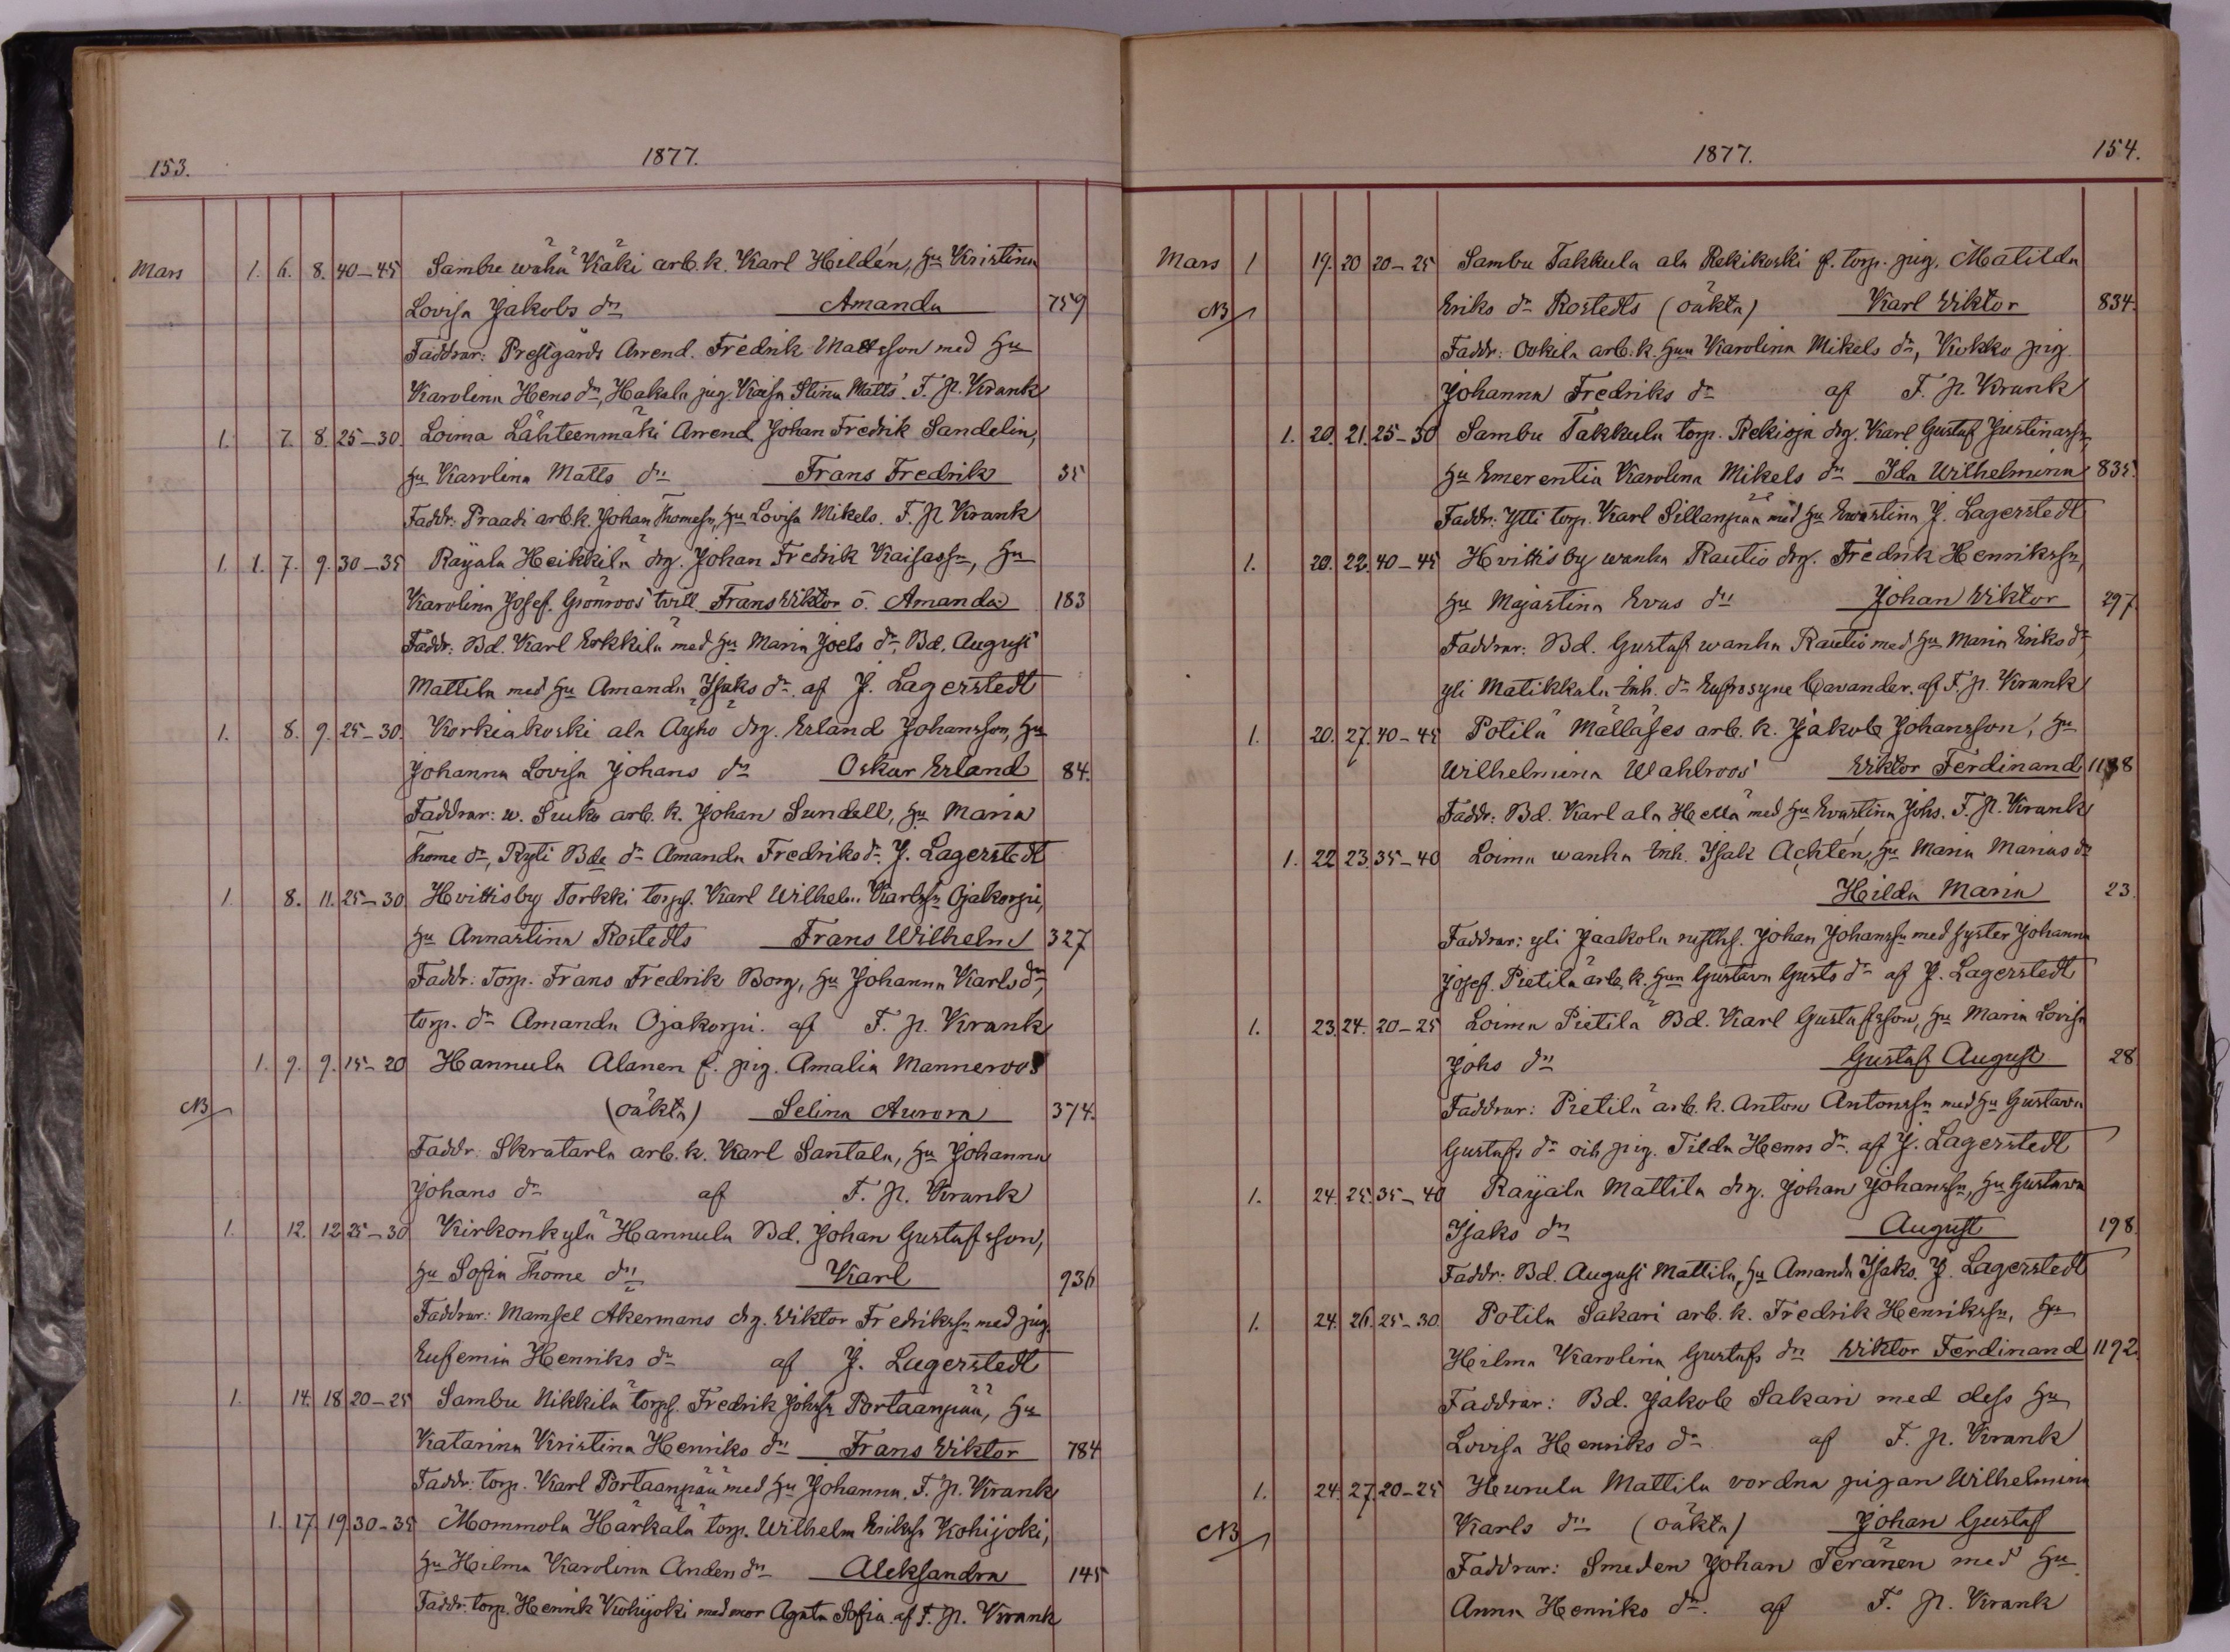 153.
1877.
Mars 1. 6. 8. 40-45 Sambu wähä Käki arb. k. Karl Hildén, Hu Kristina
Lovisa Jakobs dr Amanda 759
Faddrar: Prestgårds Arrend. Fredrik Mattsson med Hu
Karolina Hens dr, Hakala pig. Kaisa Stina Matts. F. P. Krank
1. 7. 8. 25-30. Loima Lähteenmäki Arrend. Johan Fredrik Sandelin,
Hu Karolina Matts dr Frans Fredrik 35
Faddr: Praadi arb. k. Johan Thomesn, Hu Lovisa Mikels. F. P. Krank
1. 1. 7. 9. 30-35 Raijala Heikkilä drg. Johan Fredrik Kaisassn, Hu
Karolina Josef. Grönroos tvill. Frans Viktor o. Amanda 183
Faddr: Bd. Karl Erkkilä med Hu Maria Joels dr, Bd. August
Mattila med Hu Amanda Isaks dr. af J. Lagerstedt
1. 8. 9. 25-30. Korkiakoski ala Äijhö drg. Erland Johansson, Hu
Johanna Lovisa Johans dr Oskar Erland 84.
Faddrar: w. Suuko arb. k. Johan Sundell, Hu Maria
Thome dr, Ryti Bde dr Amanda Fredriks dr. J. Lagerstedt
1. 8. 11. 25-30 Hvittisby Torkki torps. Karl Wilhelm Karlssn Ojakorpi,
Hu Annastina Rostedts Frans Wilhelm 327
Faddr: Torp. Frans Fredrik Borg, Hu Johanna Karls dr,
torp. dr Amanda Ojakorpi. af F. P. Krank
1. 9. 9. 15-20 Hannula Alanen f. pig. Amalia Manneroos
NB (oäkta) Selina Aurora 374.
Faddr. Skratarla arb. k. Karl Santala, Hu Johanna
Johans dr af F. P. Krank
1. 12. 12 25-30 Kirkonkylä Hannula Bd. Johan Gustafsson,
Hu Sofia Thome dr Karl 936
Faddrar: Mamsel Akermans drg. Viktor Fredrikssn med pig.
Eufemia Henriks dr af J. Lagerstedt
1. 14. 18 20-25 Sambu Nikkilä torps. Fredrik Johssn Portaanpää, Hu
Katarina Kristina Henriks dr Frans Viktor 784
Faddr: torp. Karl Portaanpää med Hu Johanna. F. P. Krank
1. 17. 19 30-35 Mommola Härkälä torp. Wilhelm Erikssn Kohijoki,
Hu Hilma Karolina Anders dr Aleksandra 145
Faddr. torp. Henrik Kohijoki med mor Agata Sofia. af F. P. Krank
1877.
154.
Mars 1 19. 20 20-25 Sambu Takkula ala Rekikoski f. torp. pig. Matilda
NB Eriks dr Rostedts (oäkta) Karl Viktor 834.
Faddr: Ookila arb. k. Hun Karolina Mikels dr, Kokko pig.
Johanna Fredriks dr af F. P. Krank
1. 20. 21. 25-30 Sambu Takkula torp. Rekioja drg. Karl Gustaf Justinassn,
Hu Emerentia Karolina Mikels dr Ida Wilhelmina 835.
Faddr: Ylli torp. Karl Sillanpää med Hu Evastina J. Lagerstedt
1. 20. 22. 40-45 Hvittisby wanha Rautio drg. Fredrik Henrikssn,
Hu Majastina Evas dr Johan Viktor 297
Faddrar: Bd. Gustaf wanha Rautio med Hu Maria Eriks dr,
yli Matikkala Inh. dr Eufrosyne Cavander. af F. P. Krank
1. 20. 27. 40-45 Potila Mälläses arb. k. Jakob Johansson, Hu
Wilhelmina Wahlroos Viktor Ferdinand 1188
Faddr: Bd. Karl ala Hella med Hu Evastina Johs. F. P. Krank
1. 22 23. 35-40 Loima wanha Inh. Isak Achtén, Hu Maria Marias dr
Hilda Maria 23.
Faddrar: yli Jaakola rusth. Johan Johanssn med syster Johanna
Josef. Pietilä arb. k. Hun Gustava Gusts dr af J. Lagerstedt
1. 23. 24. 20-25 Loima Pietilä Bd. Karl Gustafsson, Hu Maria Lovisa
Johs dr Gustaf August 28
Faddrar: Pietilä arb. k. Anton Antonssn med Hu Gustava
Gustafs dr och pig. Tilda Henrs dr. af J. Lagerstedt
1. 24. 25. 35-40 Raijala Mattila drg. Johan Johanssn, Hu Gustava
Isaks dr August 198
Faddr: Bd. August Mattila, Hu Amanda Isaks. J. Lagerstedt
1. 24. 26. 25-30. Potila Sakari arb. k. Fredrik Henrikssn, Hu
Hilma Karolina Gustafs dr Viktor Ferdinand 1192.
Faddrar: Bd. Jakob Sakari med dess Hu
Lovisa Henriks dr af F. P. Krank
1. 24. 27. 20-25 Hunula Mattila vordna pigan Wilhelmina
NB Karls dr (oäkta) Johan Gustaf
Faddrar: Smeden Johan Teränen med Hu
Anna Henriks dr. af F. P. Krank